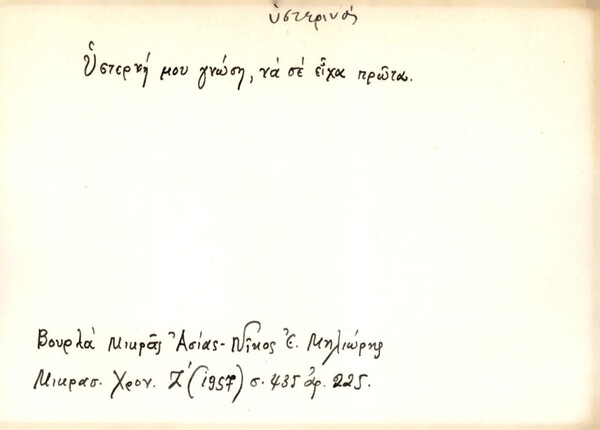 ὑστερινός
Ὑστερνή μου γνώση, νά σέ εἶχα πρῶτα.
Βουρλά Μικρᾶς Ἀσίας - Νῖκος Ἐ. Μηλιώρης
Μικρασ. Χρον. Ζ΄ (1957) σ. 435 ἀρ. 225.